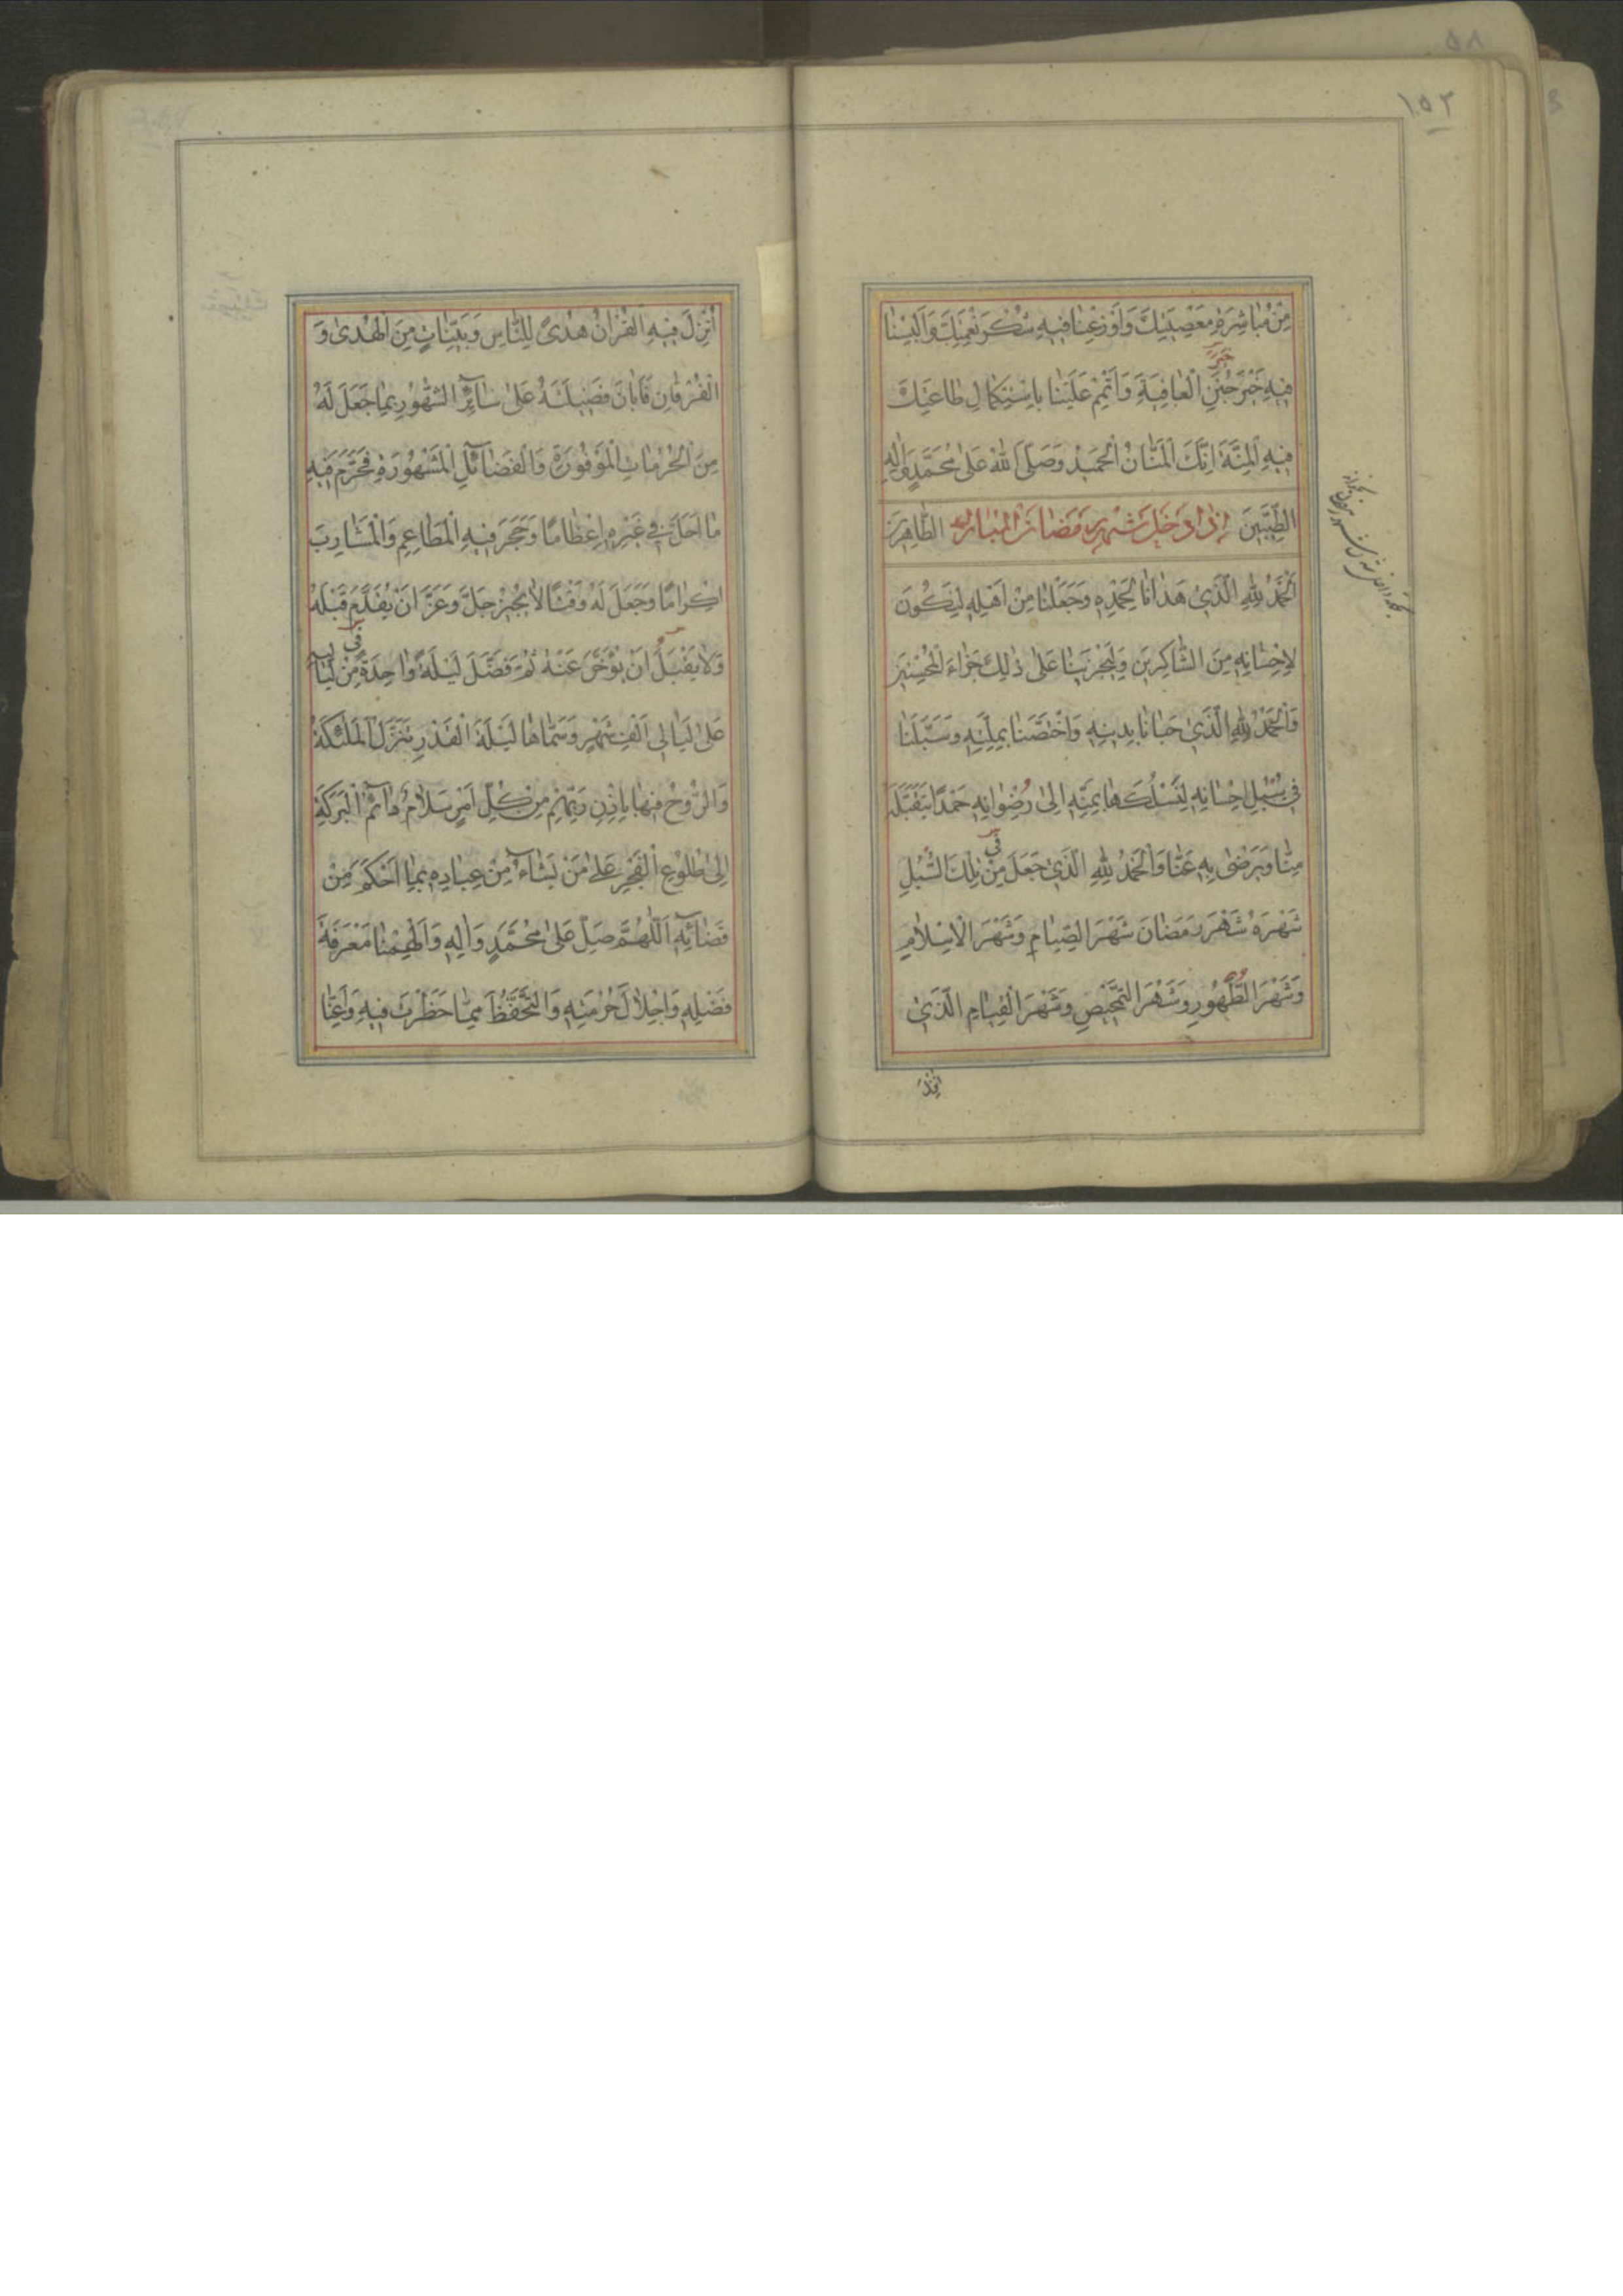 ١٥٢
مِنْ مُبَاشِرَةِ مَعْصِيَتِكَ وَاَوْزِعْنَا فِيهِ شُكْرَ نِعْمَتِكَ وَاَلْبِسْنَا
فِيهِ خَيْرَ جُنَنِ الْعَافِيَةِ وَاَتْمِمْ عَلَيْنَا بِاسْتِكْمَالِ طَاعَتِكَ
فِيهِ الْمِنَّةَ اِنَّكَ الْمَنَّانُ الْحَمِيدُ وَصَلَّى اللهُ عَلَى مُحَمَّدٍ وَآلِهِ
الطَّيِّبِينَ اِذَا دَخَلَ شَهْرُ رَمَضَانَ الْمُبَارَكِ الطَّاهِرِينَ
اَلْحَمْدُ لِلّٰهِ الَّذِي هَدَانَا لِحَمْدِهِ وَجَعَلَنَا مِنْ اَهْلِهِ لِنَكُونَ
لِاِحْسَانِهِ مِنَ الشَّاكِرِينَ وَلِيَجْزِيَنَا عَلَى ذٰلِكَ جَزَاءَ الْمُحْسِنِينَ
وَالْحَمْدُ لِلّٰهِ الَّذِي حَبَانَا بِدِينِهِ وَاخْتَصَّنَا بِمِلَّتِهِ وَسَبَّلَنَا
فِي سُبُلِ اِحْسَانِهِ لِنَسْلُكَهَا بِمَنِّهِ اِلَى رِضْوَانِهِ حَمْدًا يَتَقَبَّلُهُ
مِنَّا وَيَرْضَى بِهِ عَنَّا وَالْحَمْدُ لِلّٰهِ الَّذِي جَعَلَ مِنْ تِلْكَ السُّبُلِ
شَهْرَهُ شَهْرَ رَمَضَانَ شَهْرَ الصِّيَامِ وَشَهْرَ الْاِسْلَامِ
وَشَهْرَ الطَّهُورِ وَشَهْرَ التَّمْحِيصِ وَشَهْرَ الْقِيَامِ الَّذِي
اُنْزِلَ
اُنْزِلَ فِيهِ الْقُرْاٰنُ هُدًى لِلنَّاسِ وَبَيِّنَاتٍ مِنَ الْهُدَى وَ
الْفُرْقَانِ فَاَبَانَ فَضِيلَتَهُ عَلَى سَائِرِ الشُّهُورِ بِمَا جَعَلَ لَهُ
مِنَ الْحُرُمَاتِ الْمَوْفُورَةِ وَالْفَضَائِلِ الْمَشْهُورَةِ فَحَرَّمَ فِيهِ
مَا اَحَلَّ فِي غَيْرِهِ اِعْظَامًا وَحَجَرَ فِيهِ الْمَطَاعِمَ وَالْمَشَارِبَ
اِكْرَامًا وَجَعَلَ لَهُ وَقْتًا لَا يُجِيزُ جَلَّ وَعَزَّ اَنْ يُقَدَّمَ قَبْلَهُ
وَلَا يَقْبَلُ اَنْ يُؤَخَّرَ عَنْهُ ثُمَّ فَضَّلَ لَيْلَةً وَاحِدَةً مِنْ لَيَالِيهِ
عَلَى لَيَالِي اَلْفِ شَهْرٍ وَسَمَّاهَا لَيْلَةَ الْقَدْرِ تَنَزَّلُ الْمَلٰئِكَةُ
وَالرُّوحُ فِيهَا بِاِذْنِ رَبِّهِمْ مِنْ كُلِّ اَمْرٍ سَلَامٌ دَائِمُ الْبَرَكَةِ
اِلَى طُلُوعِ الْفَجْرِ عَلَى مَنْ يَشَاءُ مِنْ عِبَادِهِ بِمَا اَحْكَمَ مِنْ
قَضَائِهِ اَللّٰهُمَّ صَلِّ عَلَى مُحَمَّدٍ وَاٰلِهِ وَاَلْهِمْنَا مَعْرِفَةَ
فَضْلِهِ وَاِجْلَالَ حُرْمَتِهِ وَالتَّحَفُّظَ مِمَّا حَظَرْتَ فِيهِ وَاَعِنَّا